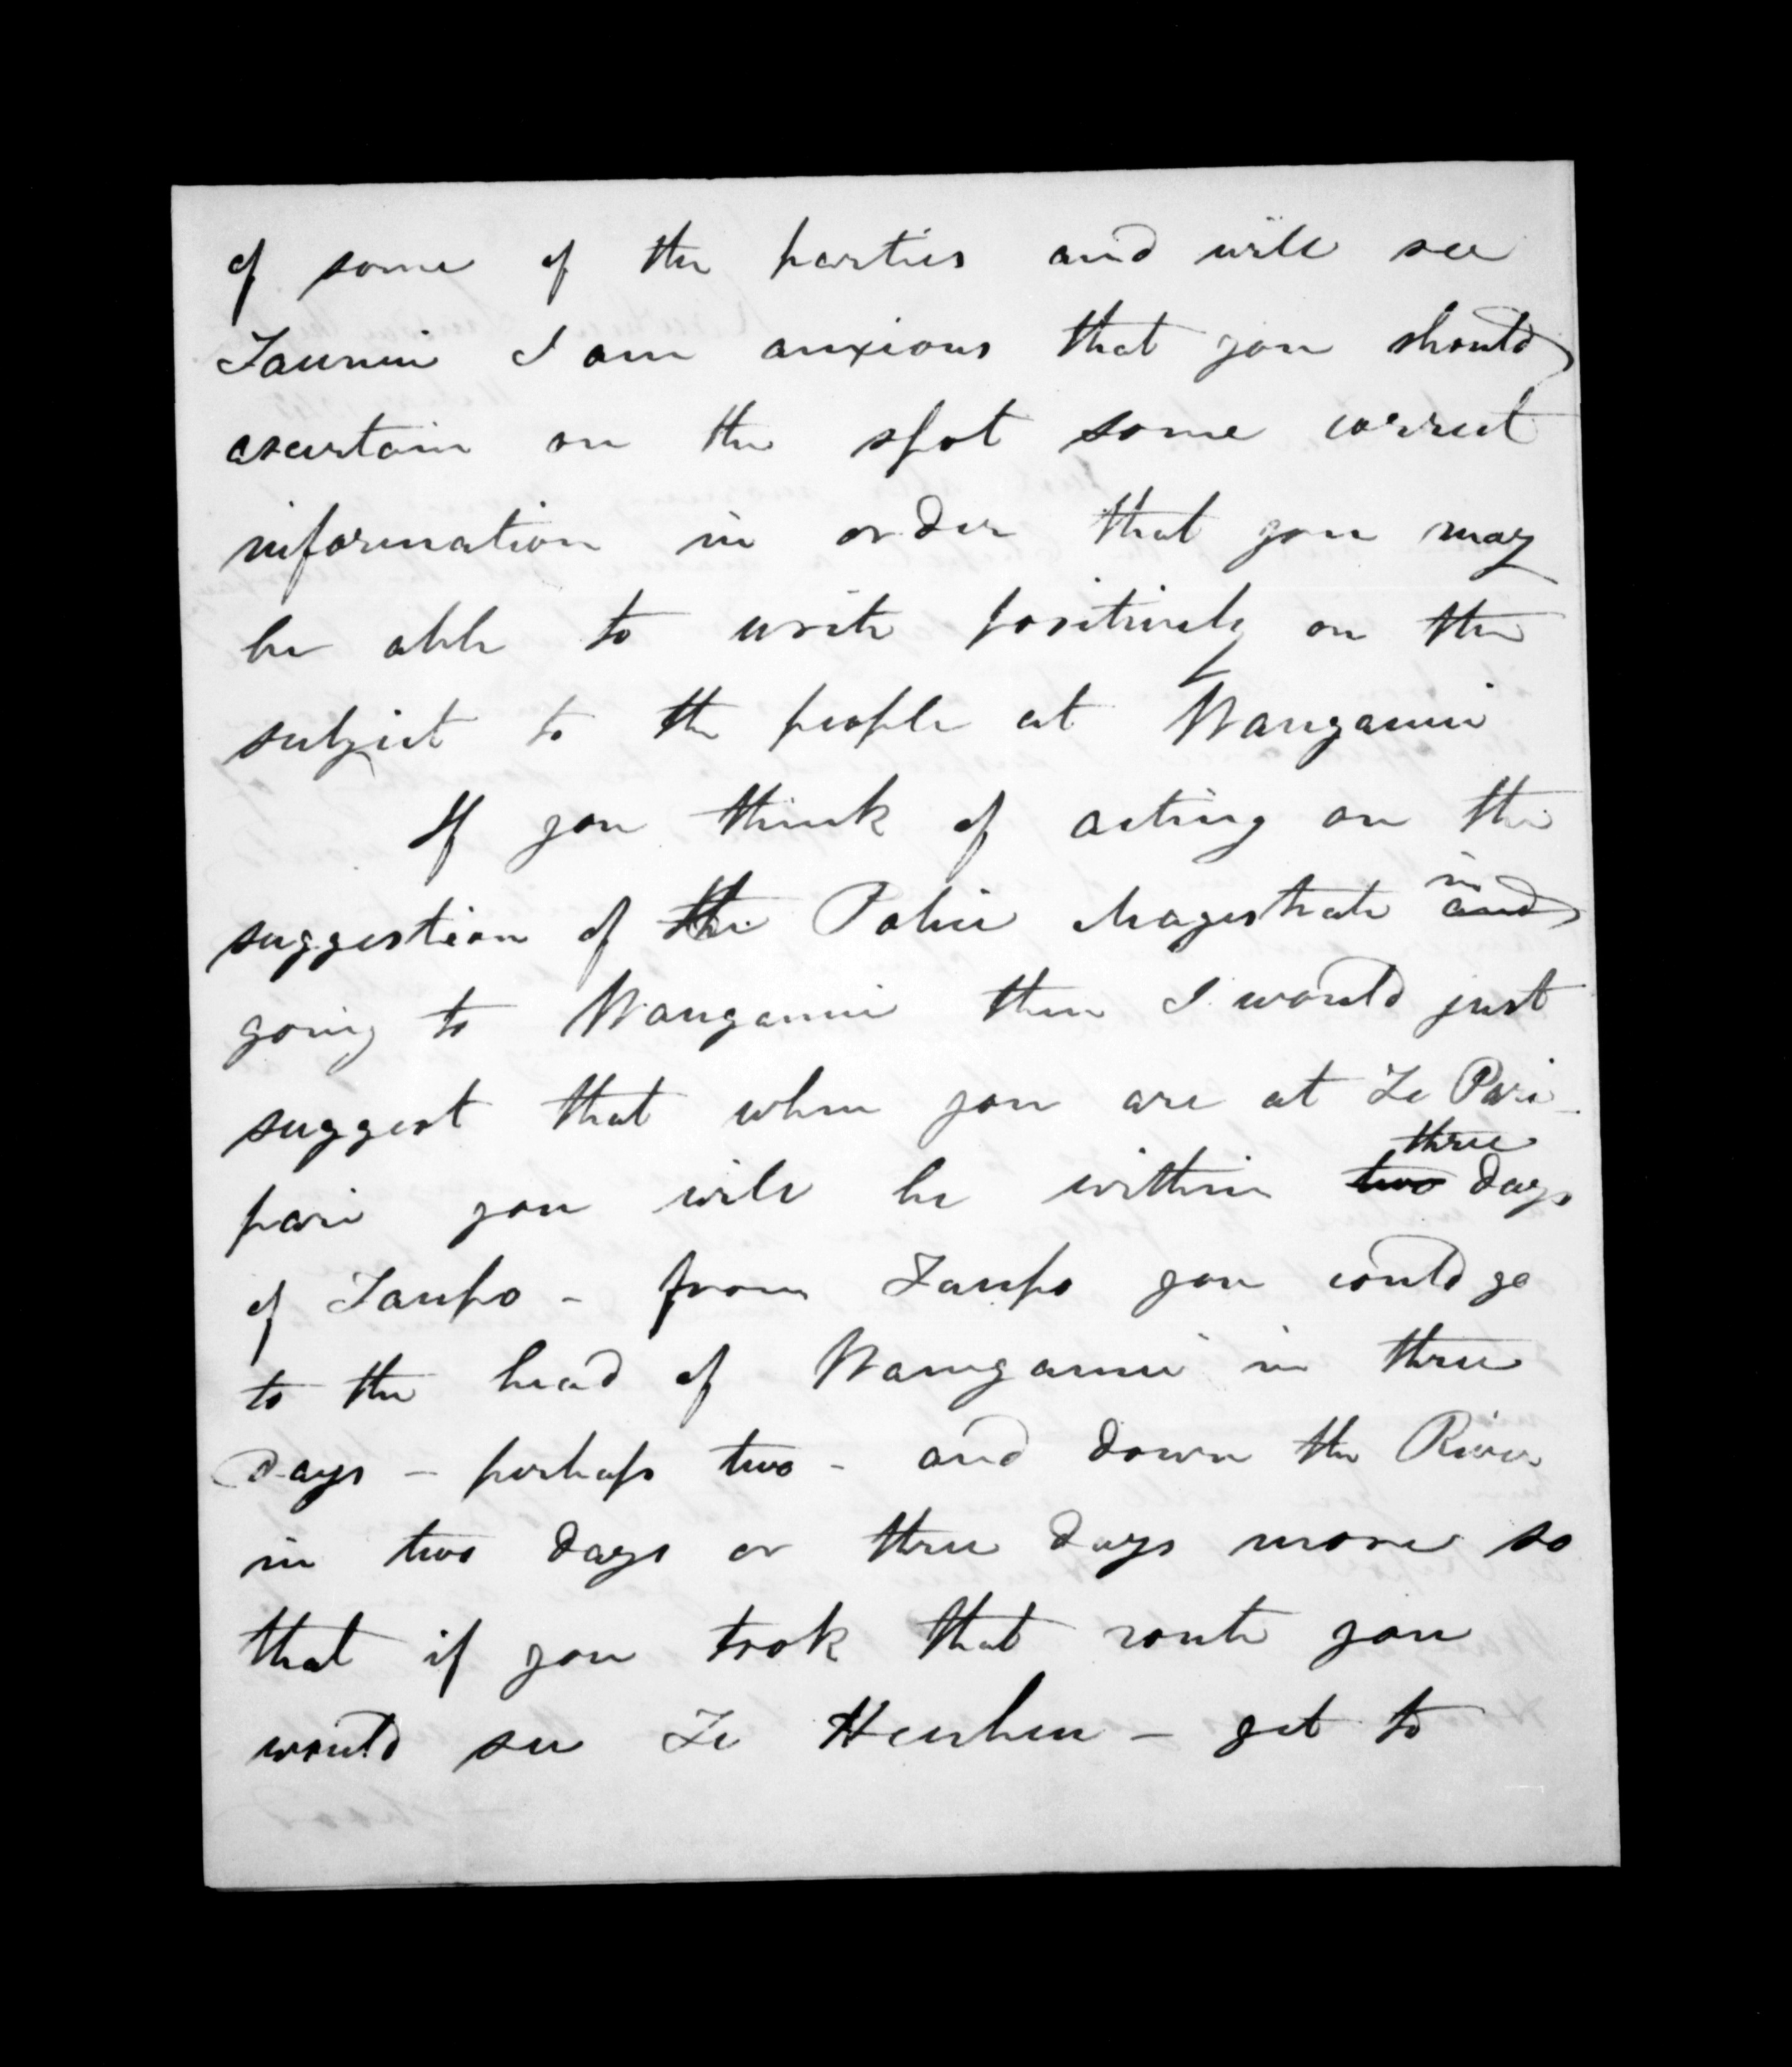 of some of the parties and will see
Taunui I am anxious that you should
ascertain on the spot some correct
information in order that you may
be able to write positively on the
subject to the people at Wanganui
If you think of acting on the
suggestion of the Police Magistrate in and
going to Wanganui then I would just
suggest that when you are at Te Pari
pari you will be within two three days
of Taupo - from Taupo you could go
to the head of Wanganui in three
days - perhaps two - and down the River
in two days or three days more so
that if you took that route you
would see Te Heuheu - get to